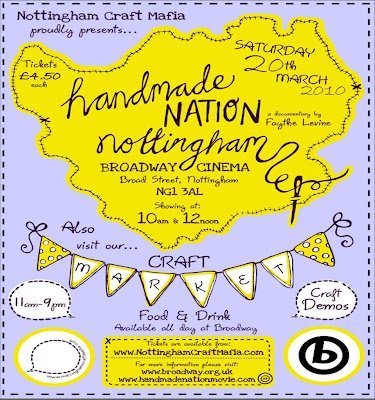 Nottingham Craft Mafia
proudly presents...
Tickets
£4.50
each
SATURDAY
20th
MARCH
2010
handmade
NATION
nottingham
a documentary by
Faythe Levine
BROADWAY CINEMA
Broad Street, Nottingham
NG1 3AL
Showing at:
10am & 12noon
Also
visit our...
CRAFT
MARKET
11am-9pm
Craft
Demos
Food & Drink
Available all day at Broadway
Tickets are available from:
www.NottinghamCraftMafia.com
For more information please visit:
www.broadway.org.uk
www.handmadenationmovie.com
b